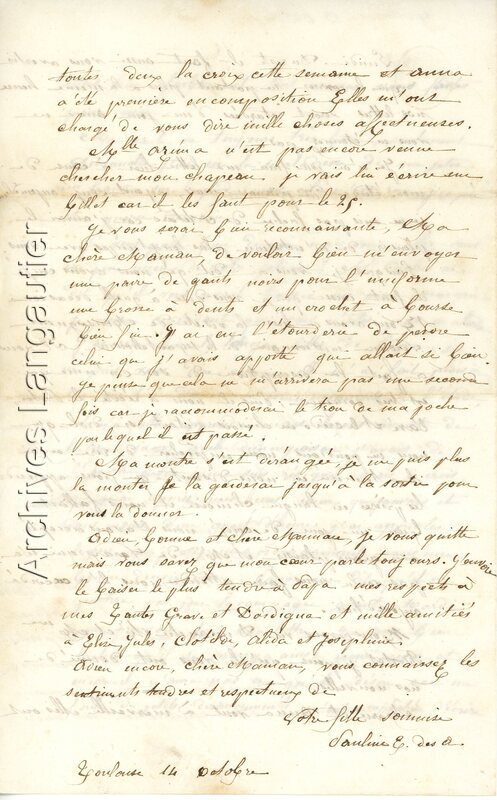 toutes deux la croix cette semaine et anna
a été première en composition Elles m'ont
chargé de vous dire mille choses affectueuses.
Melle n'est pas encore venue
chercher mon chapeau je vais lui écrire un
billet car il les faut pour le 25.
Je vous serai bien reconnaissante, Ma
chère Maman, de vouloir bien m'envoyer
une paire de gants noirs pour l'uniforme
une brosse à dents et un crochet à bourse
bien fin. J'ai eu l'étourderie de perdre
celui que j'avais apporté qui allait si bien.
Je pense que cela ne m'arrivera pas une seconde
fois car je raccommoderai le trou de ma poche
par lequel il est passé.
Ma montre s'est dérangée, je ne puis plus
la monter Je la garderai jusqu'à la sortie pour
vous la donner.
Adieu, bonne et chère Maman, je vous quitte
mais vous savez que mon cœur parle toujours. J'envoie
le baiser le plus tendre à papa mes respects à
mes Tantes et mille amitiés
à Elisa Jules, Clotilde, Alida et Joséphine.
Adieu encore, chère Maman, vous connaissez les
sentiments tendres et respectueux de
Votre fille soumise
Pauline E. des
Toulouse 14 Octobre
Archives Langautier